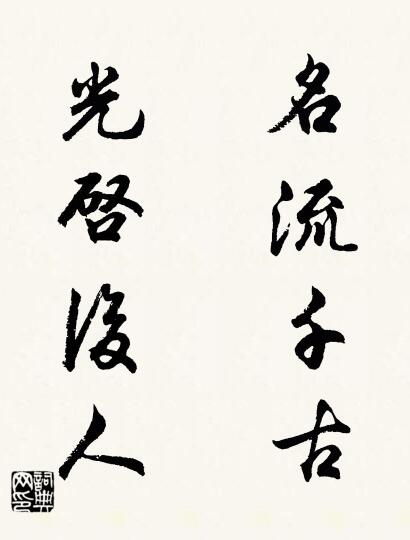 名流千古
光啓後人
詞典網印